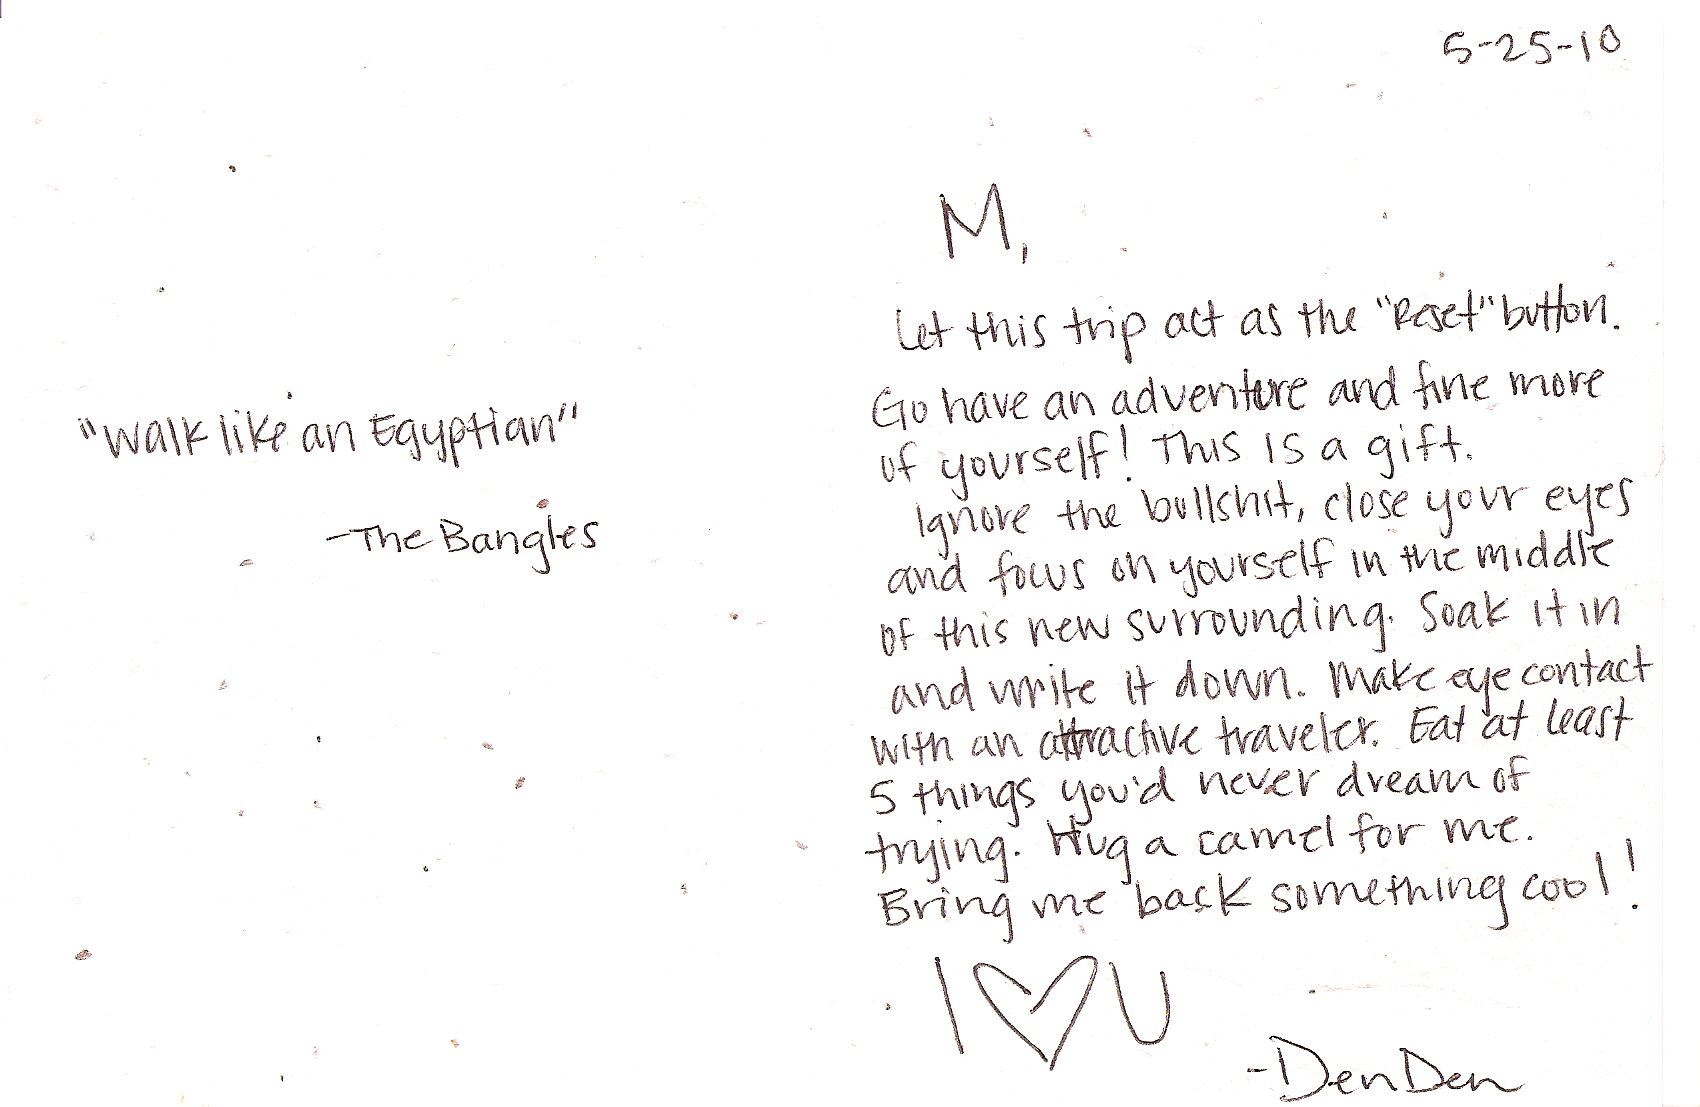 "Walk like an Egyptian"
-The Bangles
5-25-10
M,
Let this trip act as the "Reset" button.
Go have an adventure and fine more
of yourself! This is a gift.
Ignore the bullshit, close your eyes
and focus on yourself in the middle
of this new surrounding. Soak it in
and write it down. Make eye contact
with an attractive traveler. Eat at least
5 things you'd never dream of
trying. Hug a camel for me.
Bring me back something cool!
I ♡ U
-DenDen